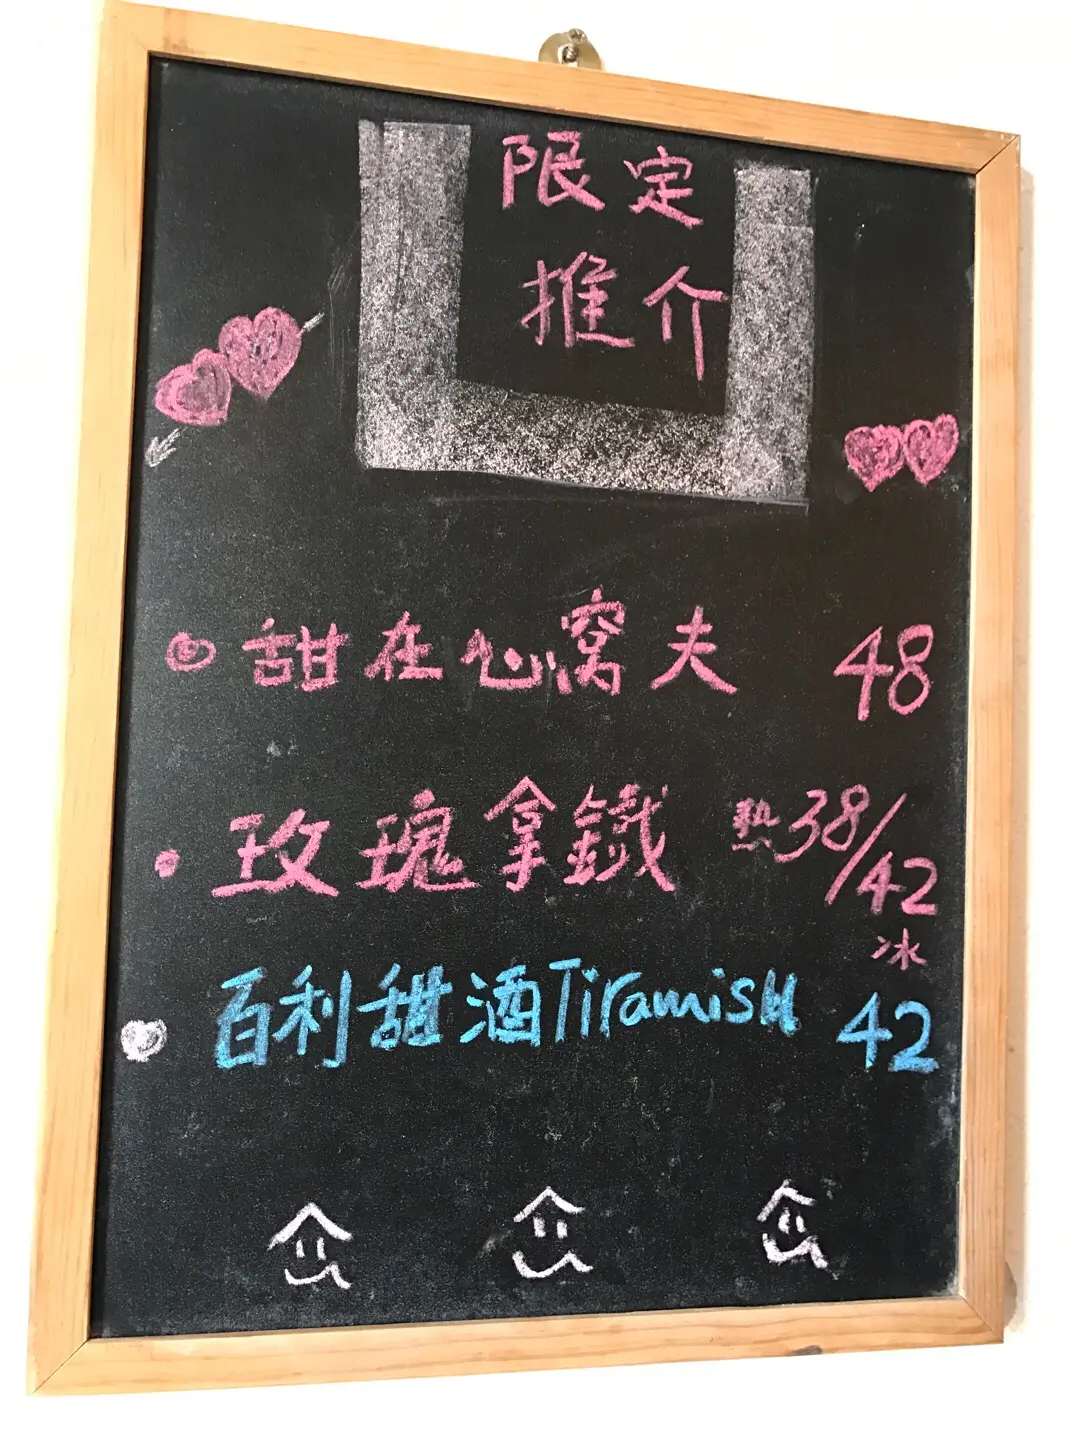 限定
推介
甜在心窩夫 48
玫瑰拿鐵 熱38/42
冰
百利甜酒Tiramisu 42